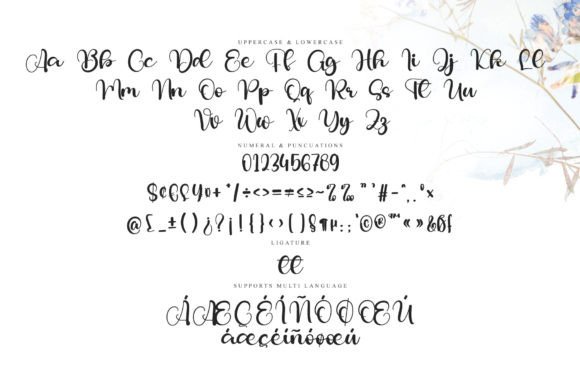 UPPERCASE & LOWERCASE
Aa Bb Cc Dd Ee Ff Gg Hh Ii Jj Kk Ll
Mm Nn Oo Pp Qq Rr Ss Tt Uu
Vv Ww Xx Yy Zz
NUMERAL & PUNCUATIONS
0123456789
$¢€£¥¤+*/÷<>=≠≤≥~%‰"'#-^,.°×
@£_±()¿?¡!{}‹›()§¶µ:;'©®™«»&Øƒ
LIGATURE
ee
SUPPORTS MULTI LANGUAGE
ÁÆÇÉÍÑÓØŒÚ
áæçéíñóøœú